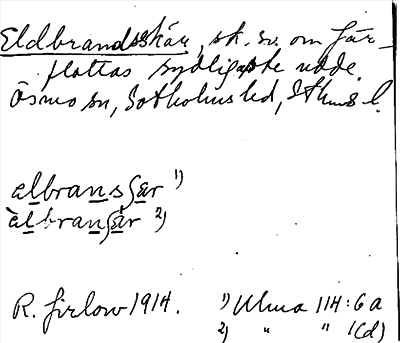 Eldbrandsskär, sk. sv. om Jär-
flottas sydligaste udde.
Ösmo sn, Sotholms hd, Sthms l.
ælbransʃær 1)
ælbranʃär 2)
R. Jirlow 1914. 1) Ulma 114:6a
2) " " 1(d)